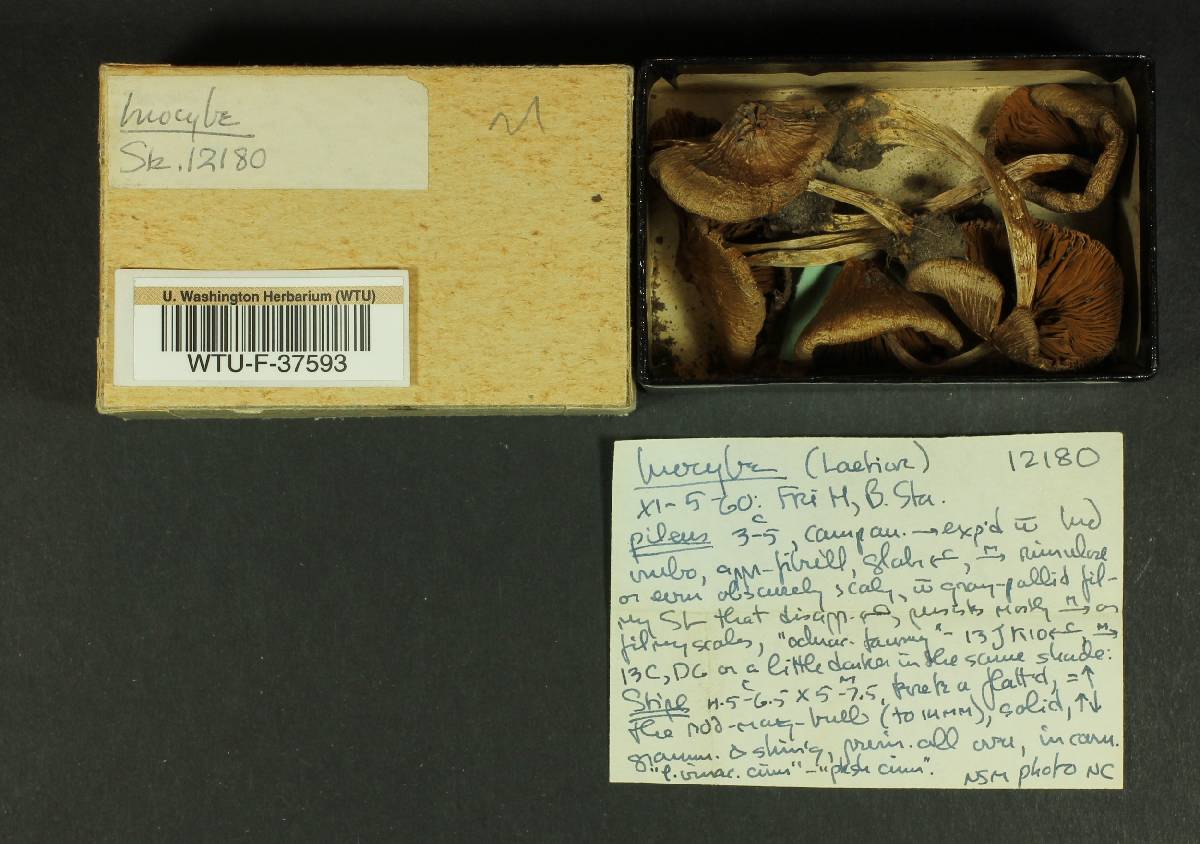 Inocybe
Stz. 12180
U. Washington Herbarium (WTU)
WTU-F-37593
Inocybe (Laetior) 12180
XI-5-60: Fri H, B. Sta.
pileus 3-5 c, campan. → exp'd w̄
umbo, appr-fibrill, glab, rimulose
or even obscurely scaly, w̄ gray-pallid fil-
my St that disapp. persists mostly → as
filmy scales, "ochrac. tawny" - 13 J K10
13C, DG or a little darker in the same shade:
Stipe 4.5-6.5 c x 5-7.5 M, flatt'd, = ↑
the rdd-marg-bulb (to 14 MM), solid, ↑↓
& shiny, pruin. all over, incarn.
"l. vinac. cinn" - "pksh cinn". NSM photo NC